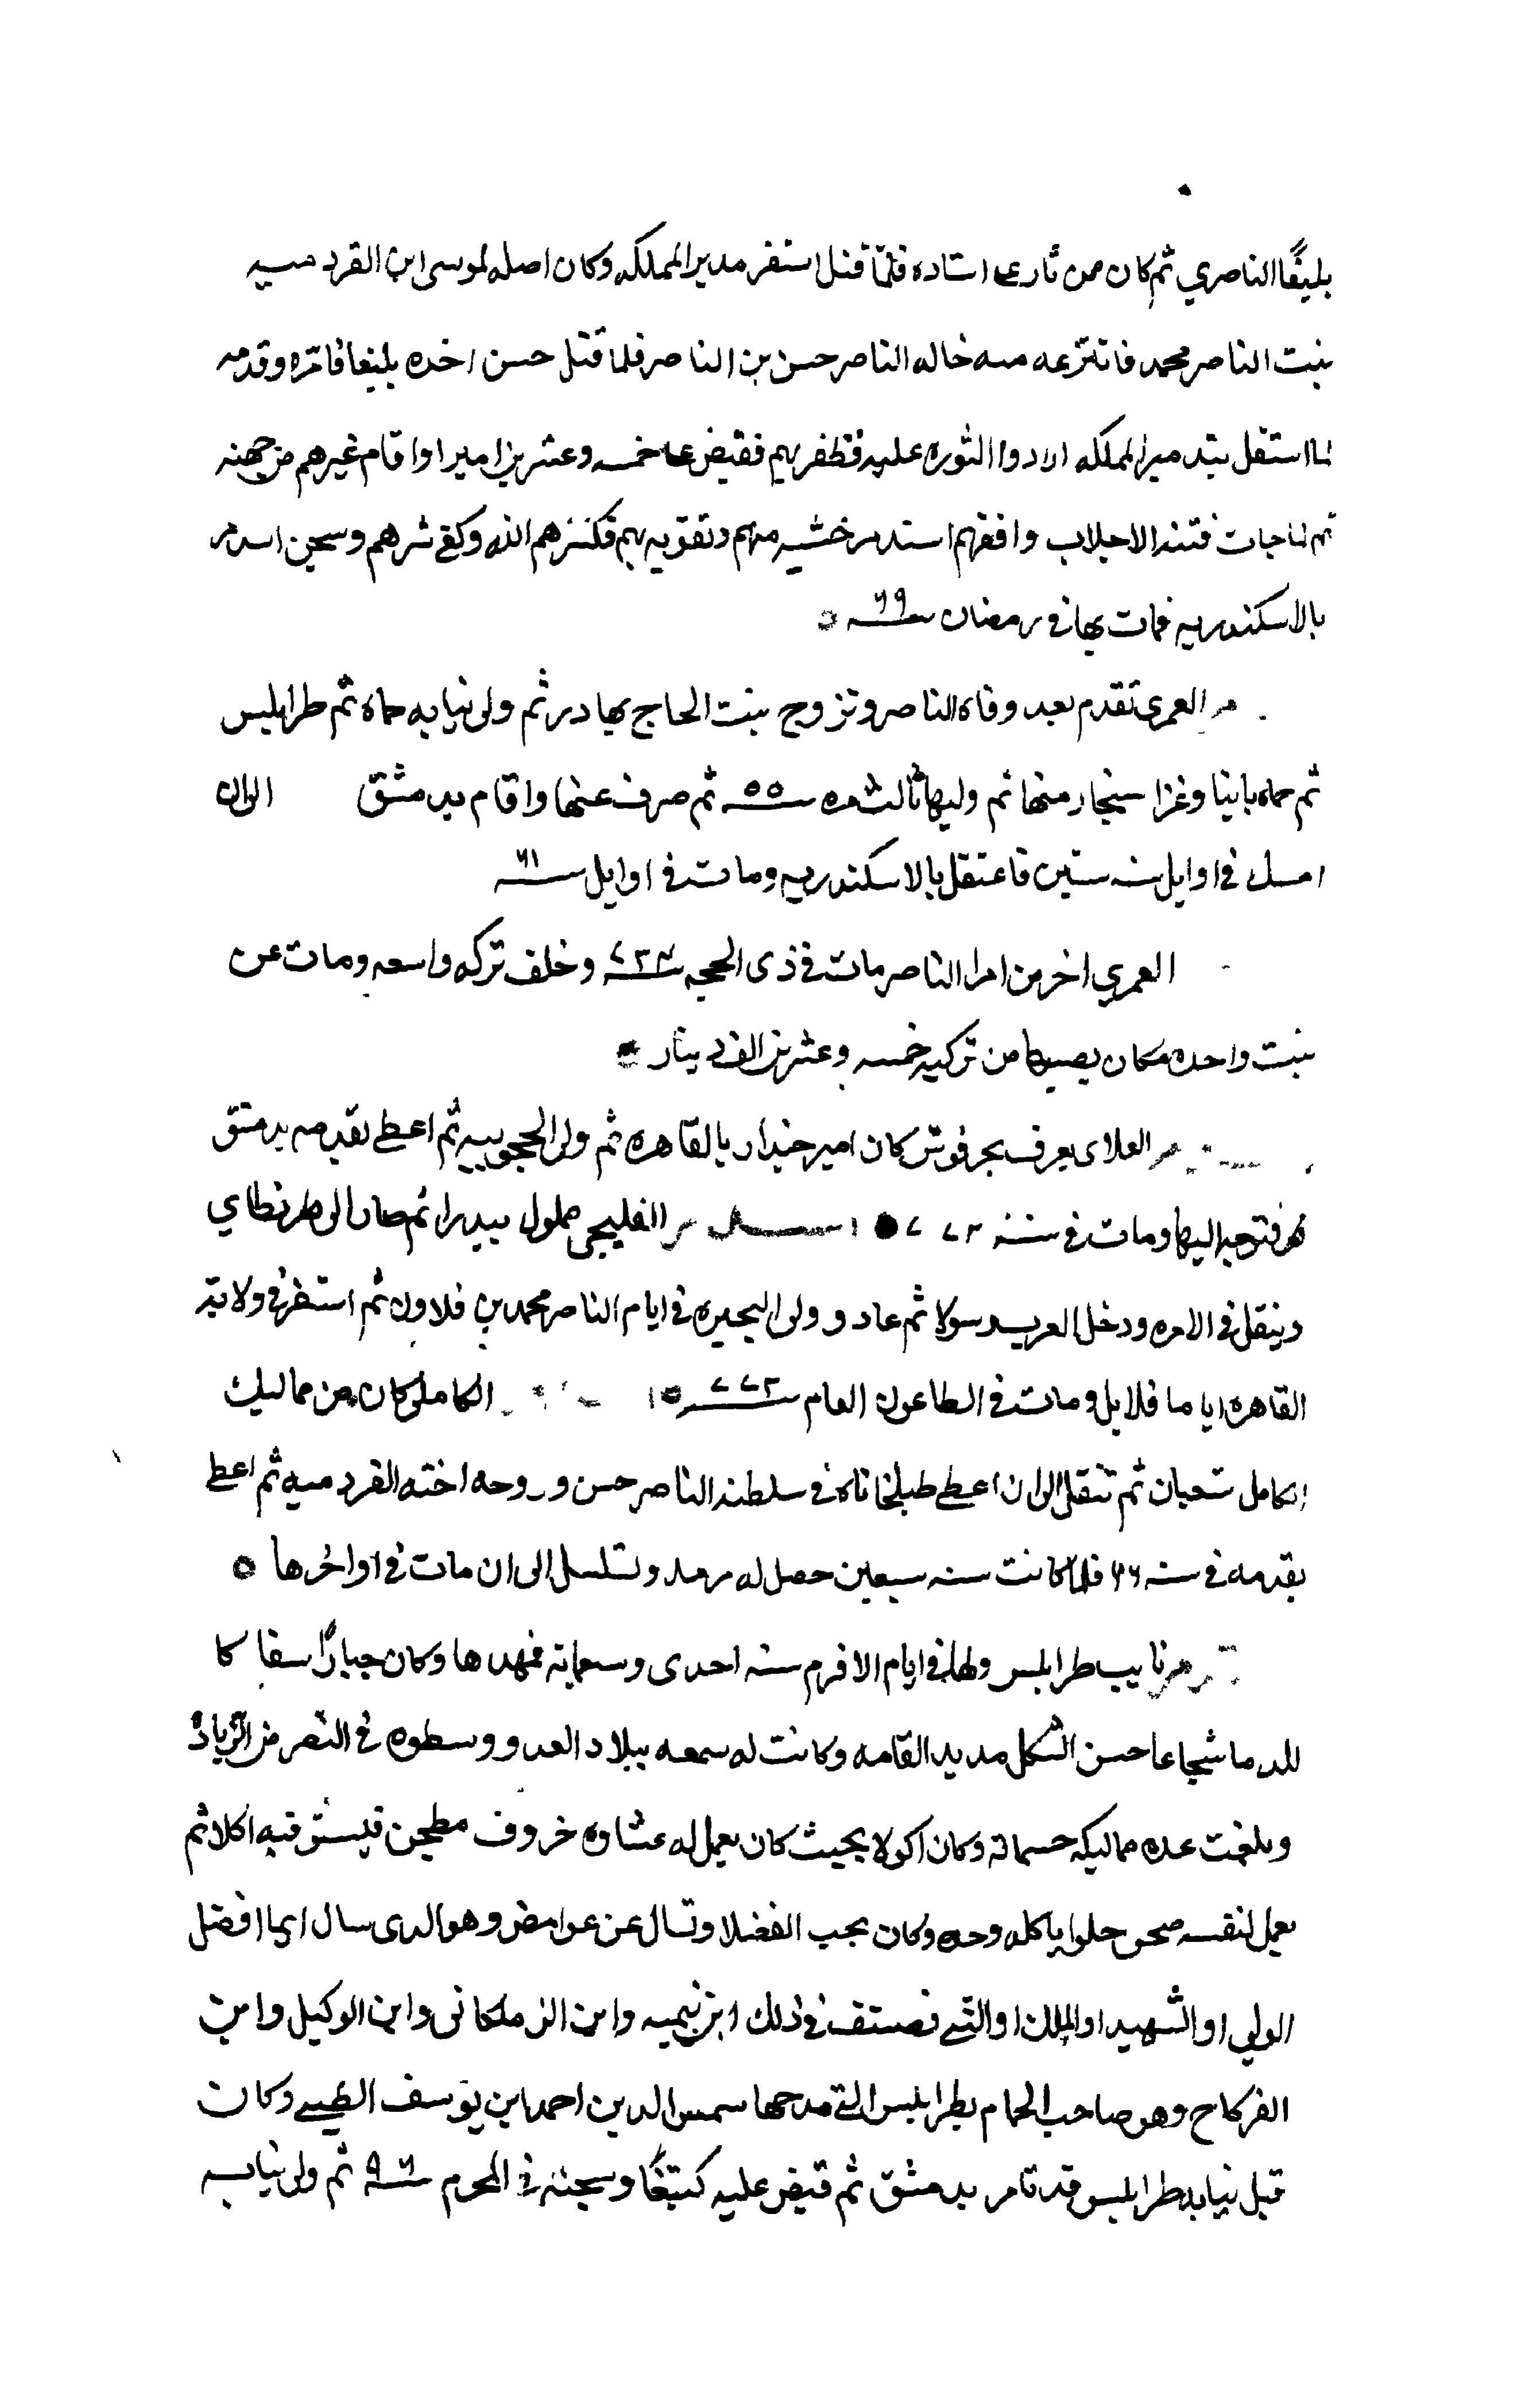 يلبغا الناصري ثم كان ممن ثار على استاده فلما قتل استقر مدبر المملكه وكان اصله لموسى ابن القردميه
بنت الناصر محمد فانتزعه منه خاله الناصر حسن بن الناصر فلما قتل حسن اخده يلبغا فامره وقدمه
لما استقل بتدبير المملكه ارادوا الثوره عليه فظفر بهم فقبض على خمسه وعشرين اميرا واقام غيرهم من جهته
ثم لما جات فتنه الاجلاب وافقهم استدمر خشيه منهم وتقويه بهم فكسرهم الله وكفى شرهم وسجن اسدمر
بالاسكندريه فمات بها في رمضان سنه ٦٩
العمرى تقدم بعد وفاه الناصر وتزوج بنت الحاج بهادر ثم ولى نيابه حماه ثم طرابلس
ثم حماه ثانيا وغزا سنجار منها ثم وليها ثالث مره سنه ٥٥ ثم صرف عنها واقام بدمشق الى ان
امسك في اوايل سنه ستين فاعتقل بالاسكندريه ومات في اوايل سنه ٦١
العمري اخر من امرا الناصر مات في ذى الحجه سنه ٧٣٤ وخلف تركه واسعه ومات عن
بنت واحده فكان نصيبها من تركته خمسه وعشرين الف دينار
العلاى يعرف بحرفوش كان امير جندار بالقاهره ثم ولى الحجوبيه ثم اعطى تقدمه بدمشق
فتوجه اليها ومات في سنه القليجي مملوك بيدرا ثم صار الى طرنطاي
وتنقل في الامره ودخل رسولا ثم عاد وولى البحيره في ايام الناصر محمد بن قلاون ثم استقر في ولايه
القاهره اياما قلايل ومات في الطاعون العام سنه الكاملى كان من مماليك
الكامل شعبان ثم تنقل الى ان اعطى طبلخاناه في سلطنه الناصر حسن وزوجه اخته القردميه ثم اعطى
تقدمه في سنه ٦٦ فلما كانت سنه سبعين حصل له رمد وتسلسل الى ان مات في اواخرها
نايب طرابلس وليها في ايام الافرم سنه احدى وسبعمايه فمهدها وكان جبارا سفاكا
للدما شجاعا حسن الشكل مديد القامه وكانت له سمعه ببلاد العدو وسطوه في النصر من الزياده
وبلغت عده مماليكه خمسمايه وكان اكولا بحيث كان يعمل له عشاوه خروف مطجن فيستوفيه اكلا ثم
يعمل لنفسه صحن حلوا ياكله وحده وكان يحب الفضلا وتسال عن غوامض وهو الدى سال ايما افضل
الولي او الشهيد او الملك او النبي فصنف في ذلك ابن تيميه وابن الزملكانى وابن الوكيل وابن
الفركاح وهو صاحب الحمام بطرابلس التي مدحها شمس الدين احمد ابن يوسف الطيبي وكان
قبل نيابه طرابلس قد تامر بدمشق ثم قبض عليه كتبغا وسجنه في المحرم سنه ٩٦ ثم ولى نيابه